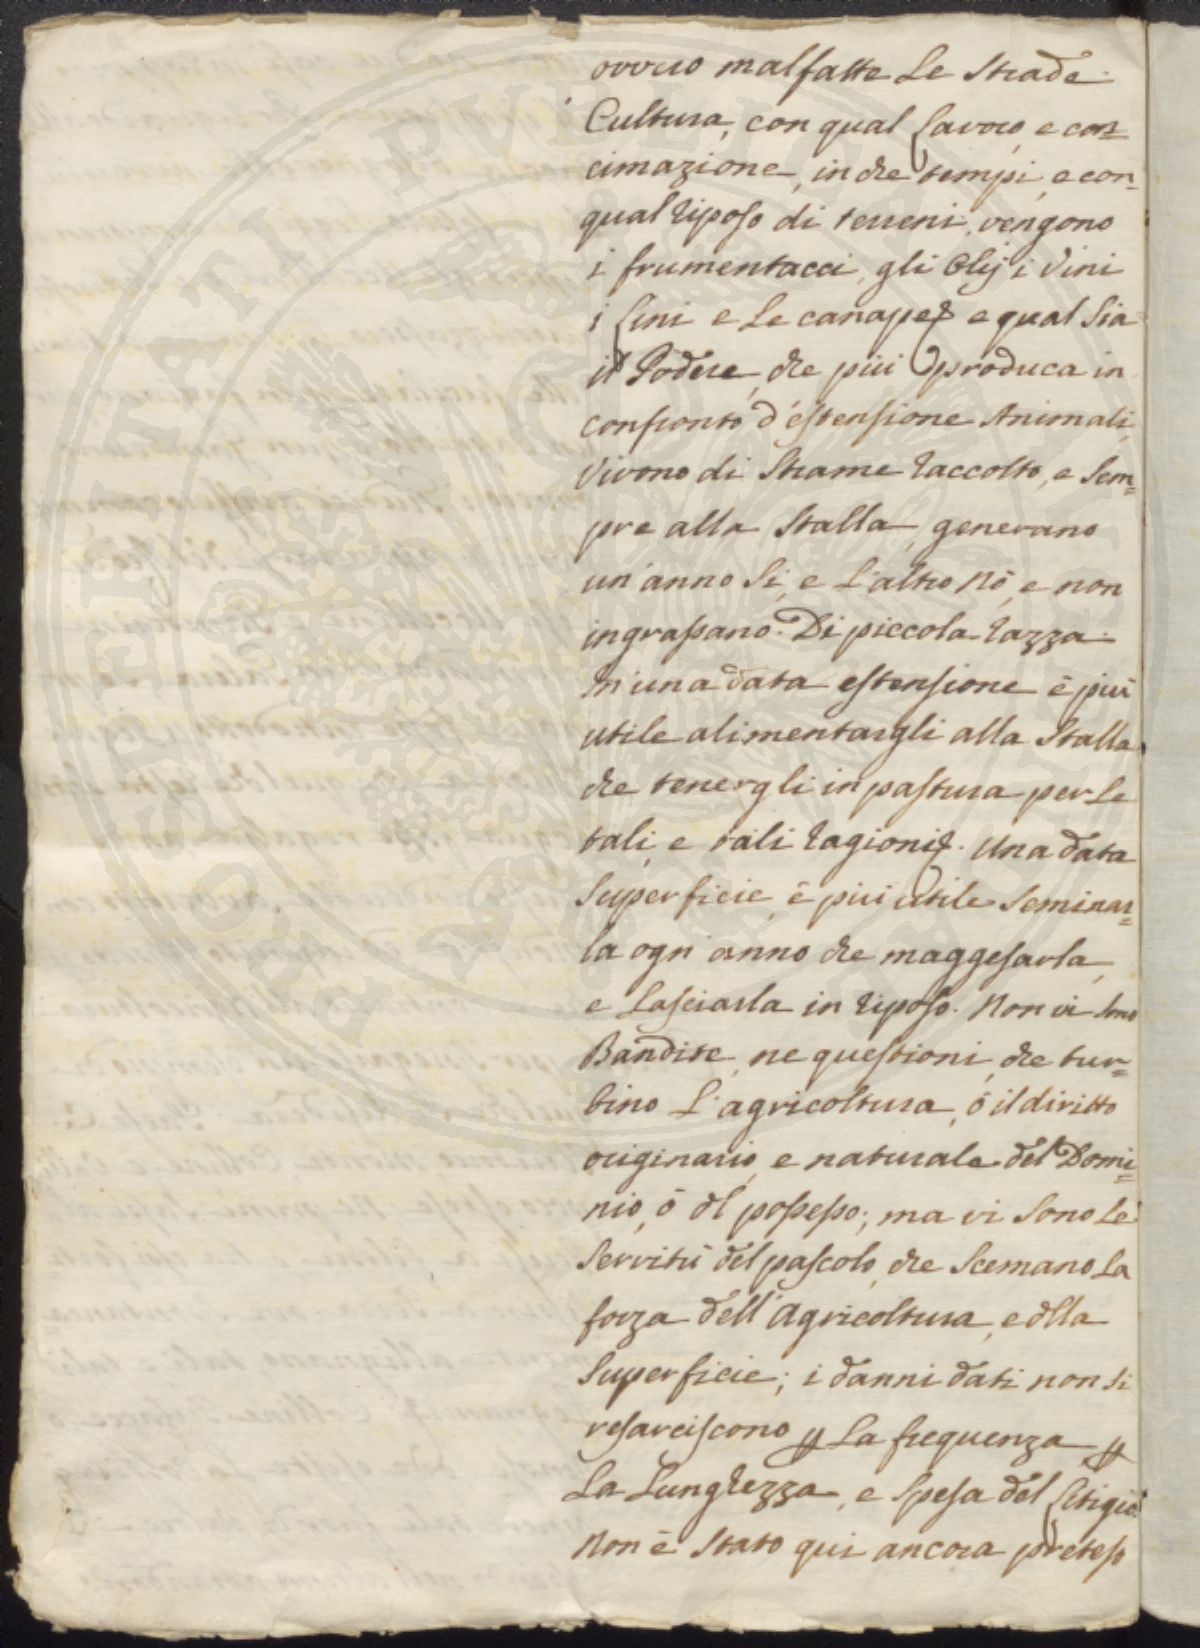 ovvero malfatte Le Strade.
Cultura, con qual Lavoro, e con=
cimazione, in che tempi, e con
qual riposo di terreni, vengono
i frumentacci, gli Olij i Vini
i Lini e Le canape e qual Sia
il Podere, che più produca in
confronto d'estensione Animali,
Vivono di Strame raccolto, e Sem=
pre alla Stalla, generano
un'anno Si, e L'altro nò, e non
ingrassano. Di piccola razza.
In una data estensione è più
utile alimentargli alla Stalla
che tenergli in pastura per Le
tali, e tali ragioni. Una data
Superficie, è più utile Seminar=
la ogn'anno che maggesarla,
e Lasciarla in riposo. Non vi Sono
Bandite, ne questioni, che tur=
bino L'agricoltura, ò il diritto
originario, e naturale del Domi=
nio, ò dl possesso; ma vi Sono Le
Servitù del pascolo, che Scemano La
forza dell'Agricoltura, e dlla
Superficie; i danni dati non Si
resarciscono p La frequenza, p
La Lunghezza, e Spesa del Litigio.
Non è Stato qui ancora preteso
PROSPERITATI PVBLICAE